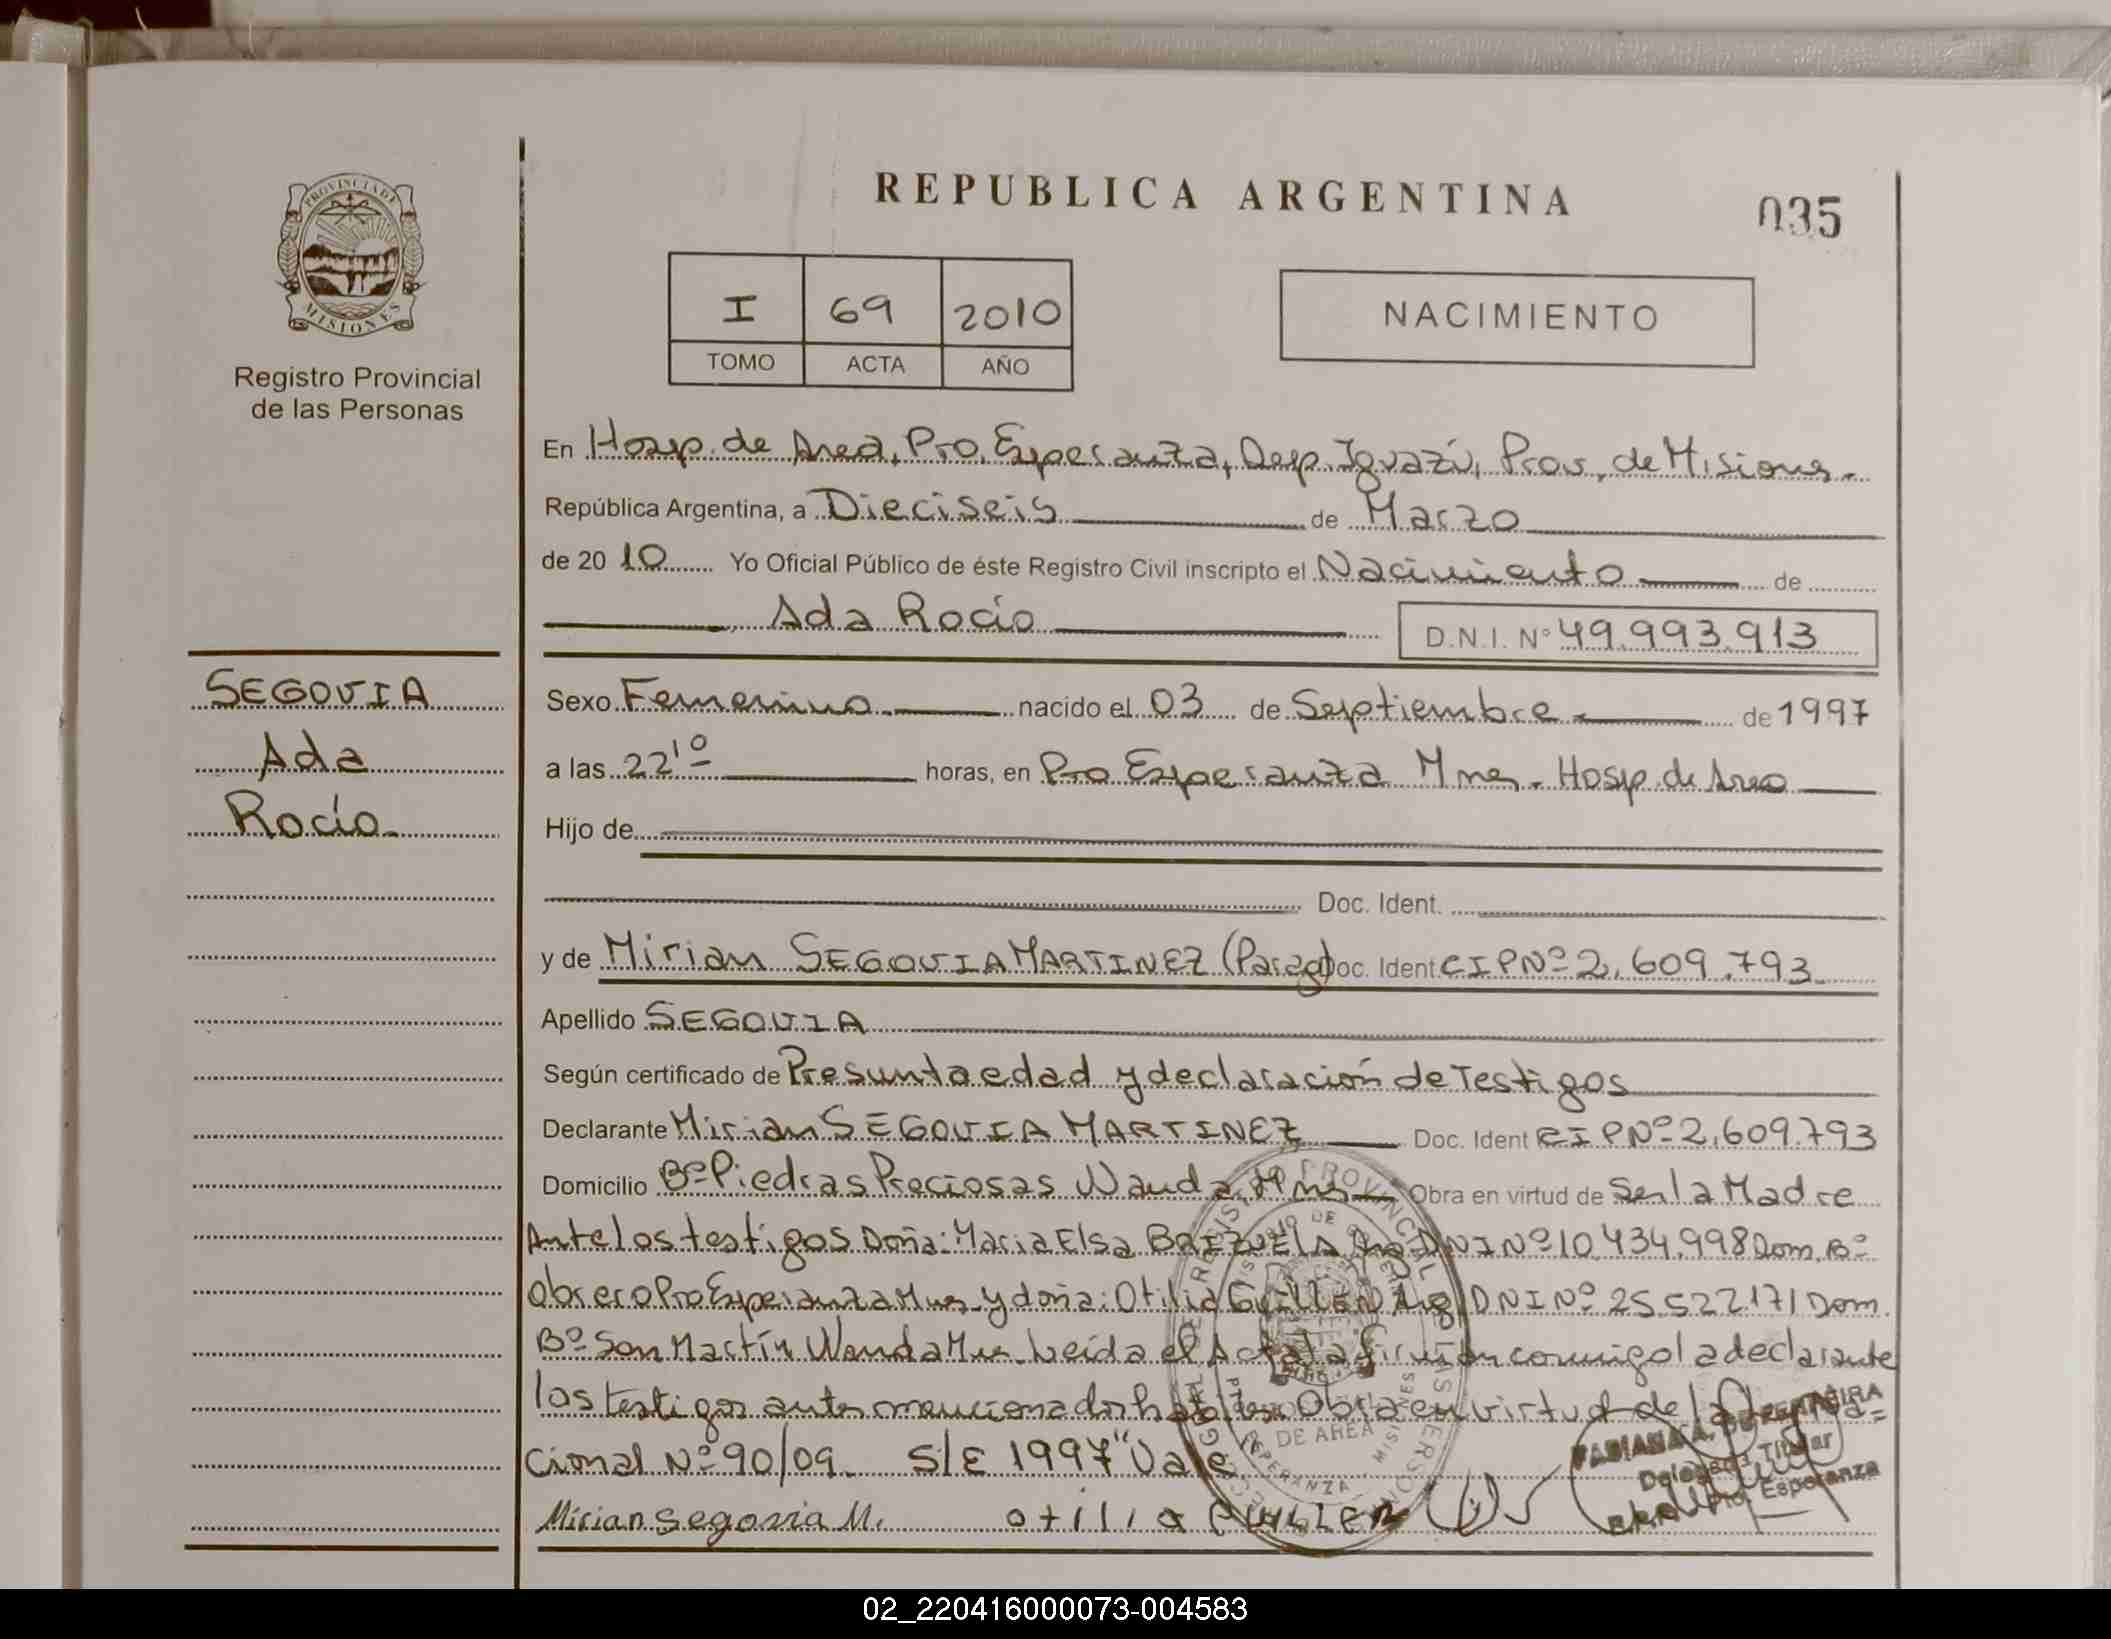 REPUBLICA ARGENTINA
035
PROVINCIA DE
MISIONES
Registro Provincial
de las Personas
I 69 2010
TOMO ACTA AÑO
NACIMIENTO
En Hosp. de Area, Pto. Esperanza, Dep. Iguazú, Prov. de Misiones.
República Argentina, a Dieciseis de Marzo
de 20 10 Yo Oficial Público de éste Registro Civil inscripto el Nacimiento de
Ada Rocío D.N.I. Nº 49.993.913
SEGOVIA
Ada
Rocío
Sexo Femenino nacido el 03 de Septiembre de 1997
a las 22¹⁰ horas, en Pto Esperanza Mnes. Hosp. de Area
Hijo de
Doc. Ident.
y de Mirian SEGOVIA MARTINEZ (Parag) Doc. Ident CIP Nº 2.609.793
Apellido SEGOVIA
Según certificado de Presunta edad y declaración de Testigos
Declarante Mirian SEGOVIA MARTINEZ Doc. Ident CIP Nº 2.609.793
Domicilio Bº Piedras Preciosas Wanda, Mns Obra en virtud de Ser la Madre
Ante los testigos Doña: Maria Elsa BRIZUELA Arg DNI Nº 10.434.998 Dom. Bº
Obrero Pto Esperanza Mnes y doña: Otilia GUILLEN Arg DNI Nº 25.522.171 Dom.
Bº San Martín Wanda Mnes. Leída el Acta la firman conmigo la declarante
los testigos antes mencionados Obra en virtud de la
cional Nº 90/09. S/E 1997 "Vale
Mirian segovia M. otilia GUILLEN
FABIANA A.
Delegada Titular
Pto. Esperanza
02_220416000073-004583